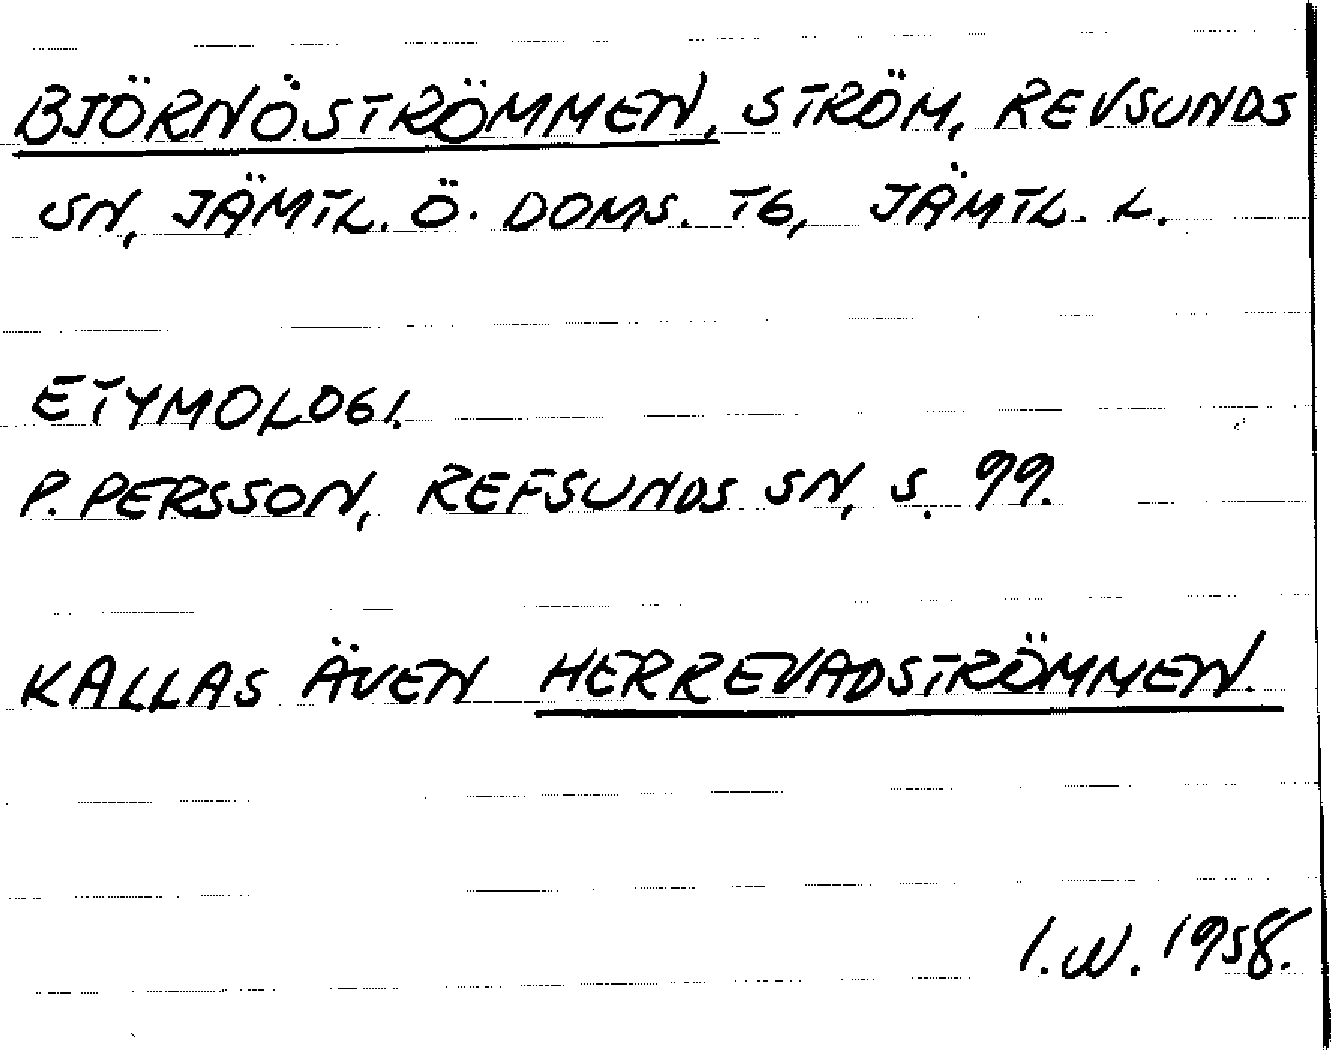 BJÖRNÖSTRÖMMEN, STRÖM, REVSUNDS
SN, JÄMTL. Ö. DOMS. TG, JÄMTL. L.
ETYMOLOGI.
P. PERSSON, REFSUNDS SN, S. 99.
KALLAS ÄVEN HERREVADSTRÖMMEN.
I.W. 1958.